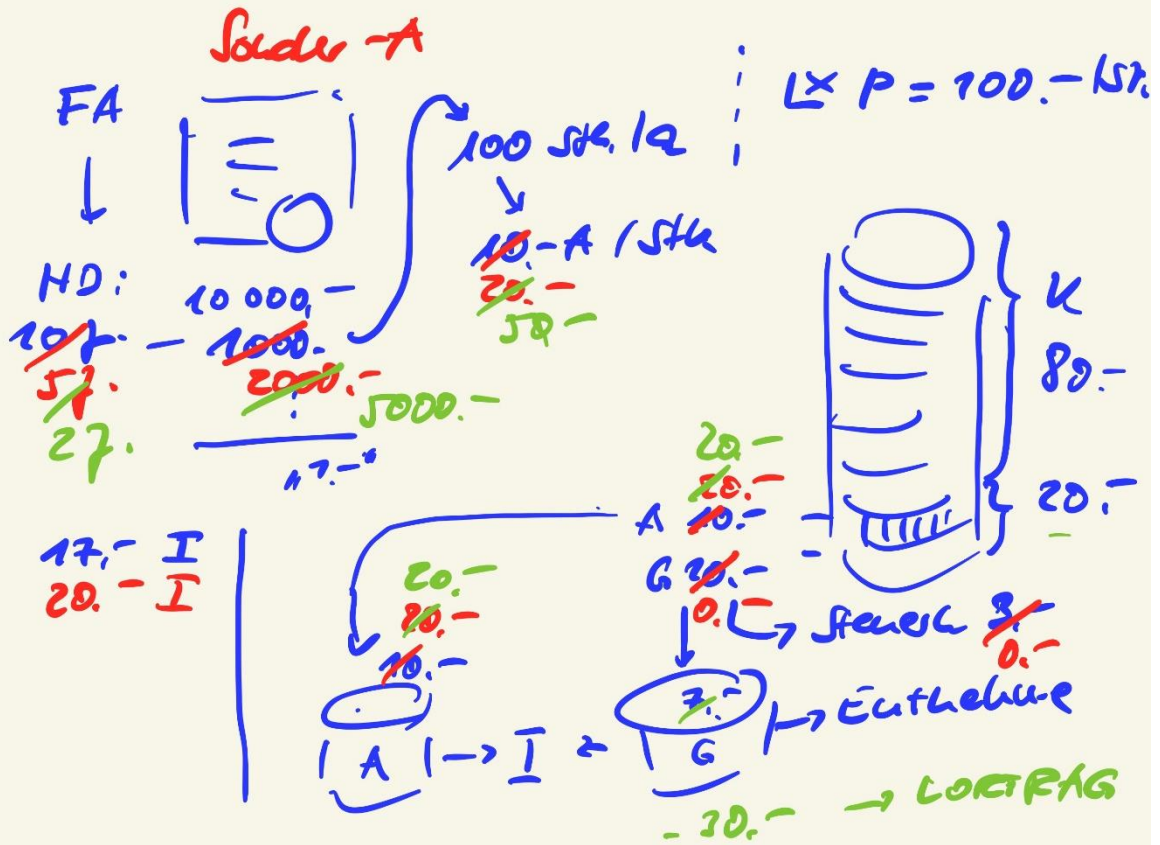 Sonder-A
FA
HD:
10 000,-
10J. - 1000.-
5J. 2000.-
2J. 5000.-
"1.-"
100 Stk./a
10.- A / Stk
20.-
50.-
1 x P = 100.-/St.
K
80.-
20.-
20.-
20.-
A 10.-
G 10.-
0.-
Steuern 3.-
0.-
17,- I
20.- I
20.-
20.-
10.-
A → I ← G
7.-
→ Entnahme
-30.- → VORTRAG